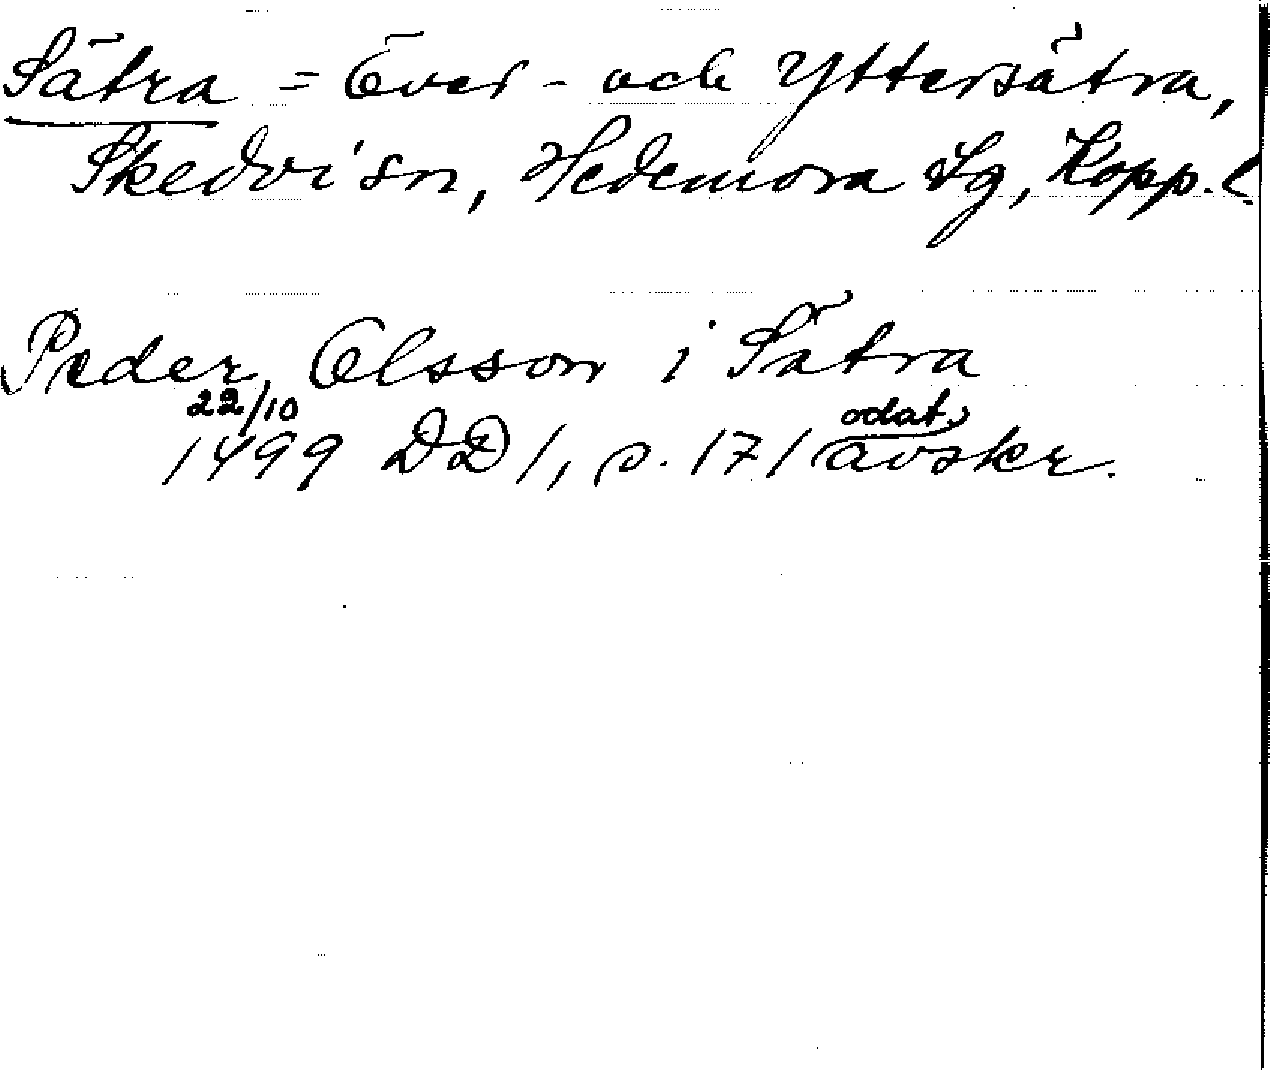 Sätra = Över- och Yttersätra,
Skedvi sn, Hedemora tg, Kopp. l.
Peder Olsson i Sätra
22/10
1499 DD 1, s. 171 odat. avskr.